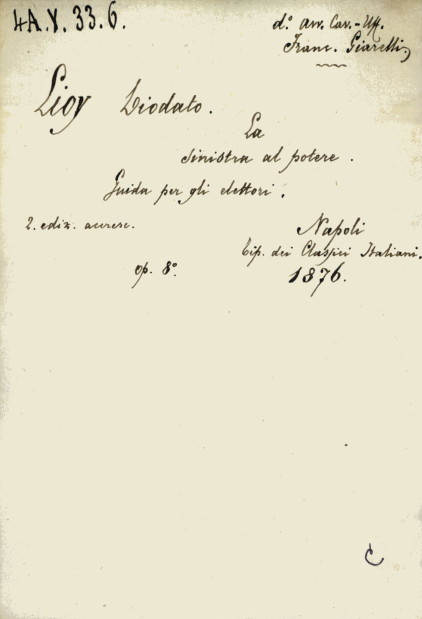 4A.V.33.6.
d.° avv. Cav.-Uff.
Franc. Giarelli
Lioy Diodato.
La
sinistra al potere.
Guida per gli elettori.
2. ediz. accresc.
Napoli
tip. dei Classici Italiani.
op. 8°
1876.
C